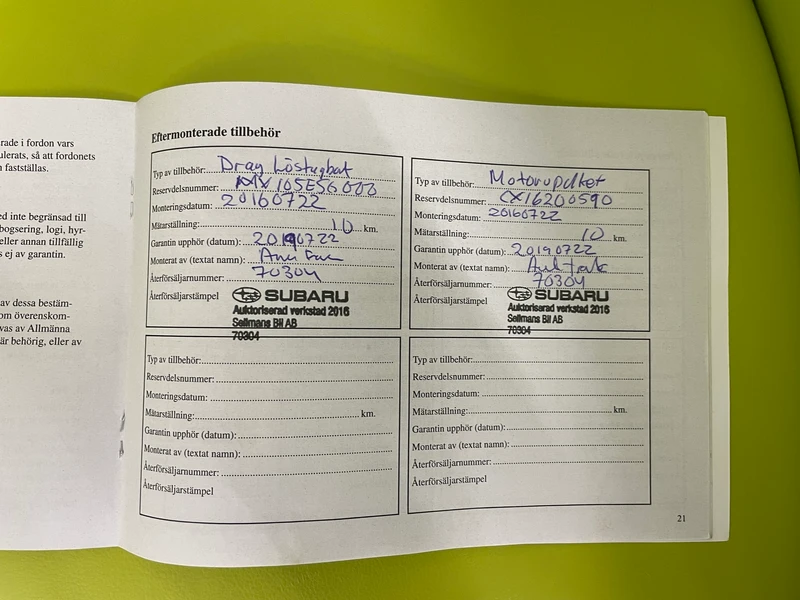 rade i fordon vars
ulerats, så att fordonets
fastställas.
ed inte begränsad till
bogsering, logi, hyr-
eller annan tillfällig
s ej av garanti.
av dessa bestäm-
om överenskom-
vas av Allmänna
är behörig, eller av
Eftermonterade tillbehör
Typ av tillbehör: Drag Löstagbat
Reservdelsnummer: 105ESG000
Monteringsdatum: 20160722
Mätarställning: 10 km.
Garantin upphör (datum): 20190722
Monterat av (textat namn):
Återförsäljarnummer: 70304
Återförsäljarstämpel SUBARU
Auktoriserad verkstad 2016
Sellmans Bil AB
70304
Typ av tillbehör: Motorupdket
Reservdelsnummer: CX16200590
Monteringsdatum: 20160722
Mätarställning: 10 km.
Garantin upphör (datum): 20190722
Monterat av (textat namn):
Återförsäljarnummer: 70304
Återförsäljarstämpel SUBARU
Auktoriserad verkstad 2016
Sellmans Bil AB
70304
Typ av tillbehör:
Reservdelsnummer:
Monteringsdatum:
Mätarställning: km.
Garantin upphör (datum):
Monterat av (textat namn):
Återförsäljarnummer:
Återförsäljarstämpel
Typ av tillbehör:
Reservdelsnummer:
Monteringsdatum:
Mätarställning: km.
Garantin upphör (datum):
Monterat av (textat namn):
Återförsäljarnummer:
Återförsäljarstämpel
21